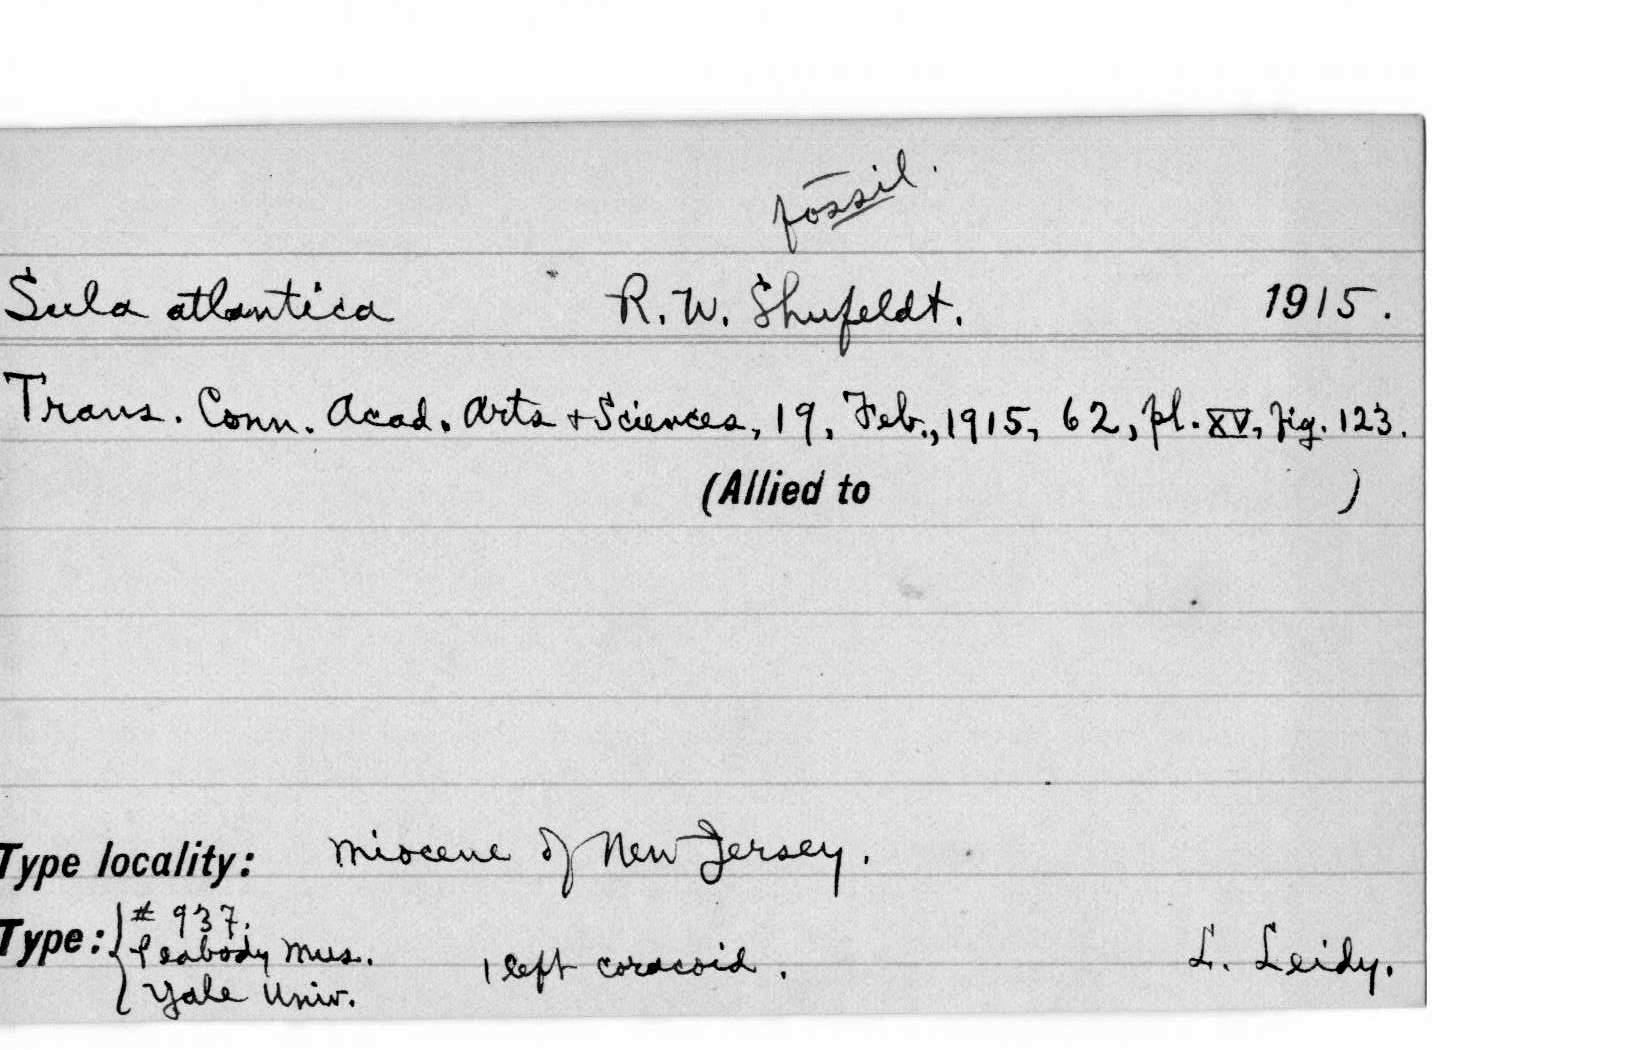 fossil.
Sula atlantica R. W. Shufeldt. 1915.
Trans. Conn. Acad. Arts + Sciences, 19, Feb., 1915, 62, pl. XV, fig. 123.
(Allied to )
Type locality: Miocene of New Jersey.
Type: # 937.
Peabody Mus. 1 left coracoid. L. Leidy.
Yale Univ.